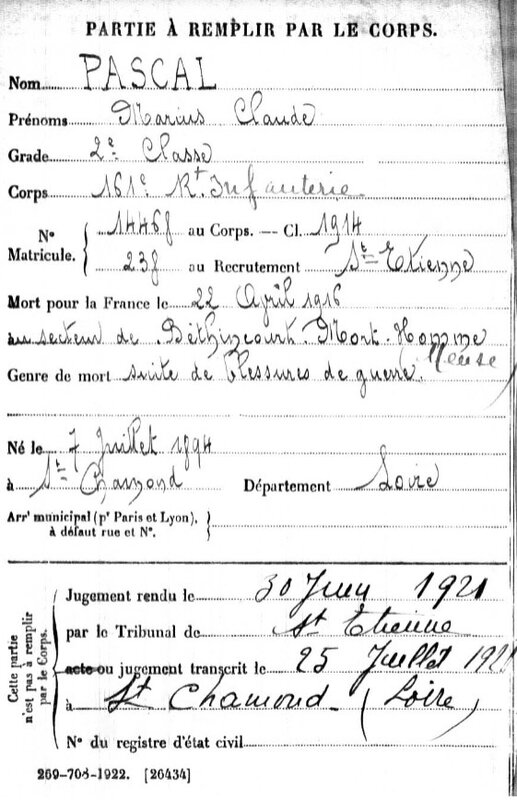 PARTIE À REMPLIR PAR LE CORPS.
Nom PASCAL
Prénoms Marius Claude
Grade 2e Classe
Corps 161e Rt Infanterie
No Matricule. 14468 au Corps. — Cl. 1914
238 au Recrutement St Etienne
Mort pour la France le 22 Avril 1916
au secteur de Béthincourt Mort-Homme
Meuse
Genre de mort suite de blessures de guerre
Né le 7 Juillet 1894
à St Chamond Département Loire
Arrt municipal (pr Paris et Lyon),
à défaut rue et No.
Cette partie n'est pas à remplir par le Corps.
Jugement rendu le 30 Juin 1921
par le Tribunal de St Etienne
acte ou jugement transcrit le 25 Juillet 192
à St Chamond (Loire)
No du registre d'état civil
269-708-1922. [26434]